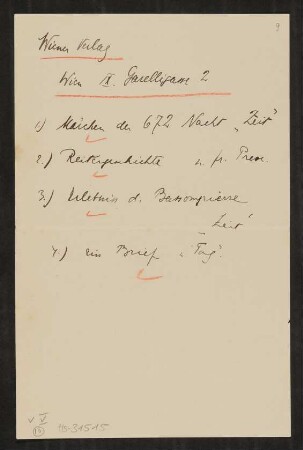 9
Wiener Verlag
Wien IX. Garelligasse 2
1) Märchen der 672 Nacht „Zeit"
2.) Reitergeschichte n. fr. Presse.
3.) Erlebnis d. Bassompierre
„Zeit"
4.) ein Brief „Tag".
V
15
31515